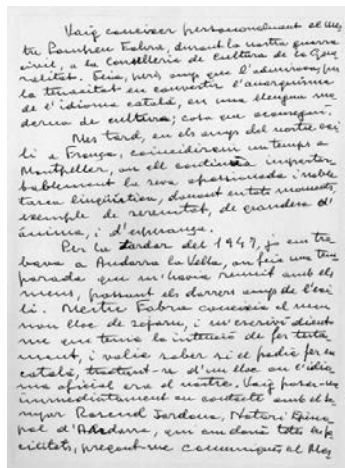 Vaig coneixer personalment al Mes
tre Pompeu Fabra, durant la nostra guerra
civil, a la Conselleria de Cultura de la Gene
ralitat. Feia, però, anys que l'admirava, per
la tenacitat en convertir l'anarquisme
de l'idioma català, en una llengua mo
derna de cultura; cosa que aconseguí.
Mes tard, en els anys del nostre exi
li a França, coincidirem un temps a
Montpeller, on ell continuà impertor
bablement la seva apassionada i noble
tasca lingüistica, donant en tots moments,
exemple de serenitat, de grandesa d'
ànima, i d'esperança.
Per la tardor del 1947, jo em tro
bava a Andorra la Vella, on feia una tem
porada que m'havia reunit amb els
meus, passant els darrers anys de l'exi
li. Mestre Fabra coneixia el meu
nou lloc de sojorn, i m'escriví dient
me que tenia la intenció de fer testa
ment, i volia saber si el podia fer en
català, tractant-se d'un lloc on l'idio
ma oficial era el nostre. Vaig posar-me
immediatament en contacte amb el se
nyor Rosend Jordana, Notari Episco
pal d'Andorra, qui em donà totes les fa
cilitats, pregant-me comuniqués al Mes